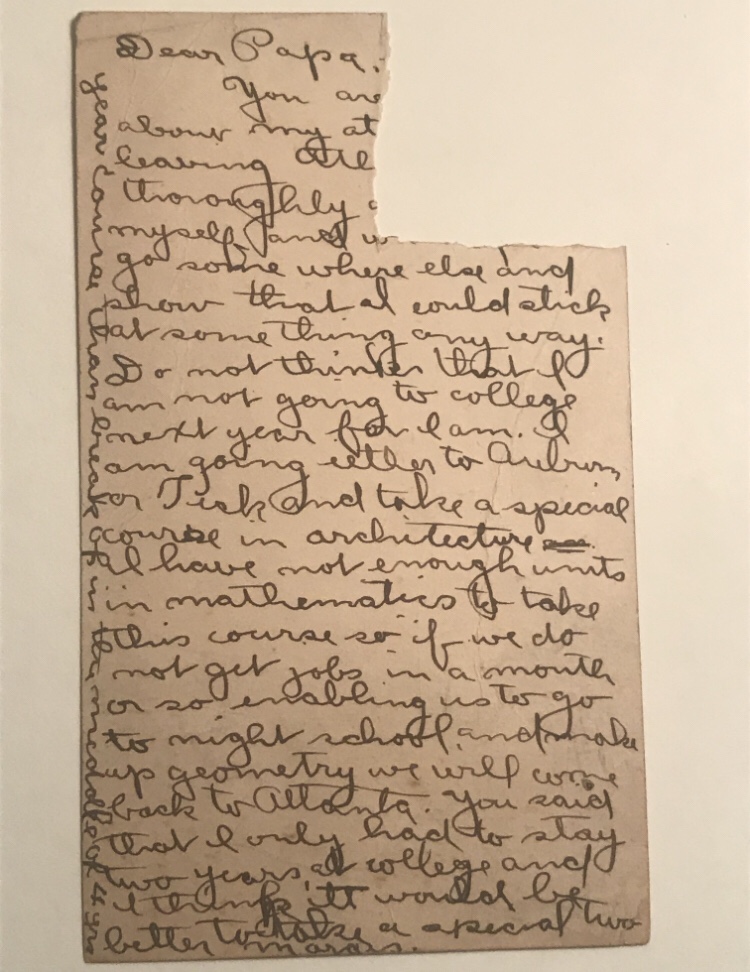 Dear Papa:
You are
about my at
leaving Atl
thoroughly
myself, and w
go some where else and
show that I could stick
at something any way.
Do not think that I
am not going to college
next year for I am. I
am going either to Auburn,
or Tech and take a special
course in architecture
I have not enough units
in mathematics to take
this course so if we do
not get jobs in a month
or so enabling us to go
to night school and make
up geometry we will come
back to Atlanta. You said
that I only had to stay
two years at college and
I think it would be
better to take a special two
year course than break off in the middle of 4 yrs